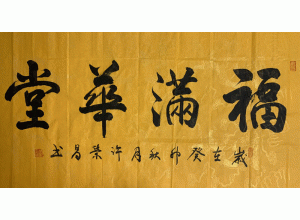 福滿華堂
歲在癸卯秋月許榮昌書